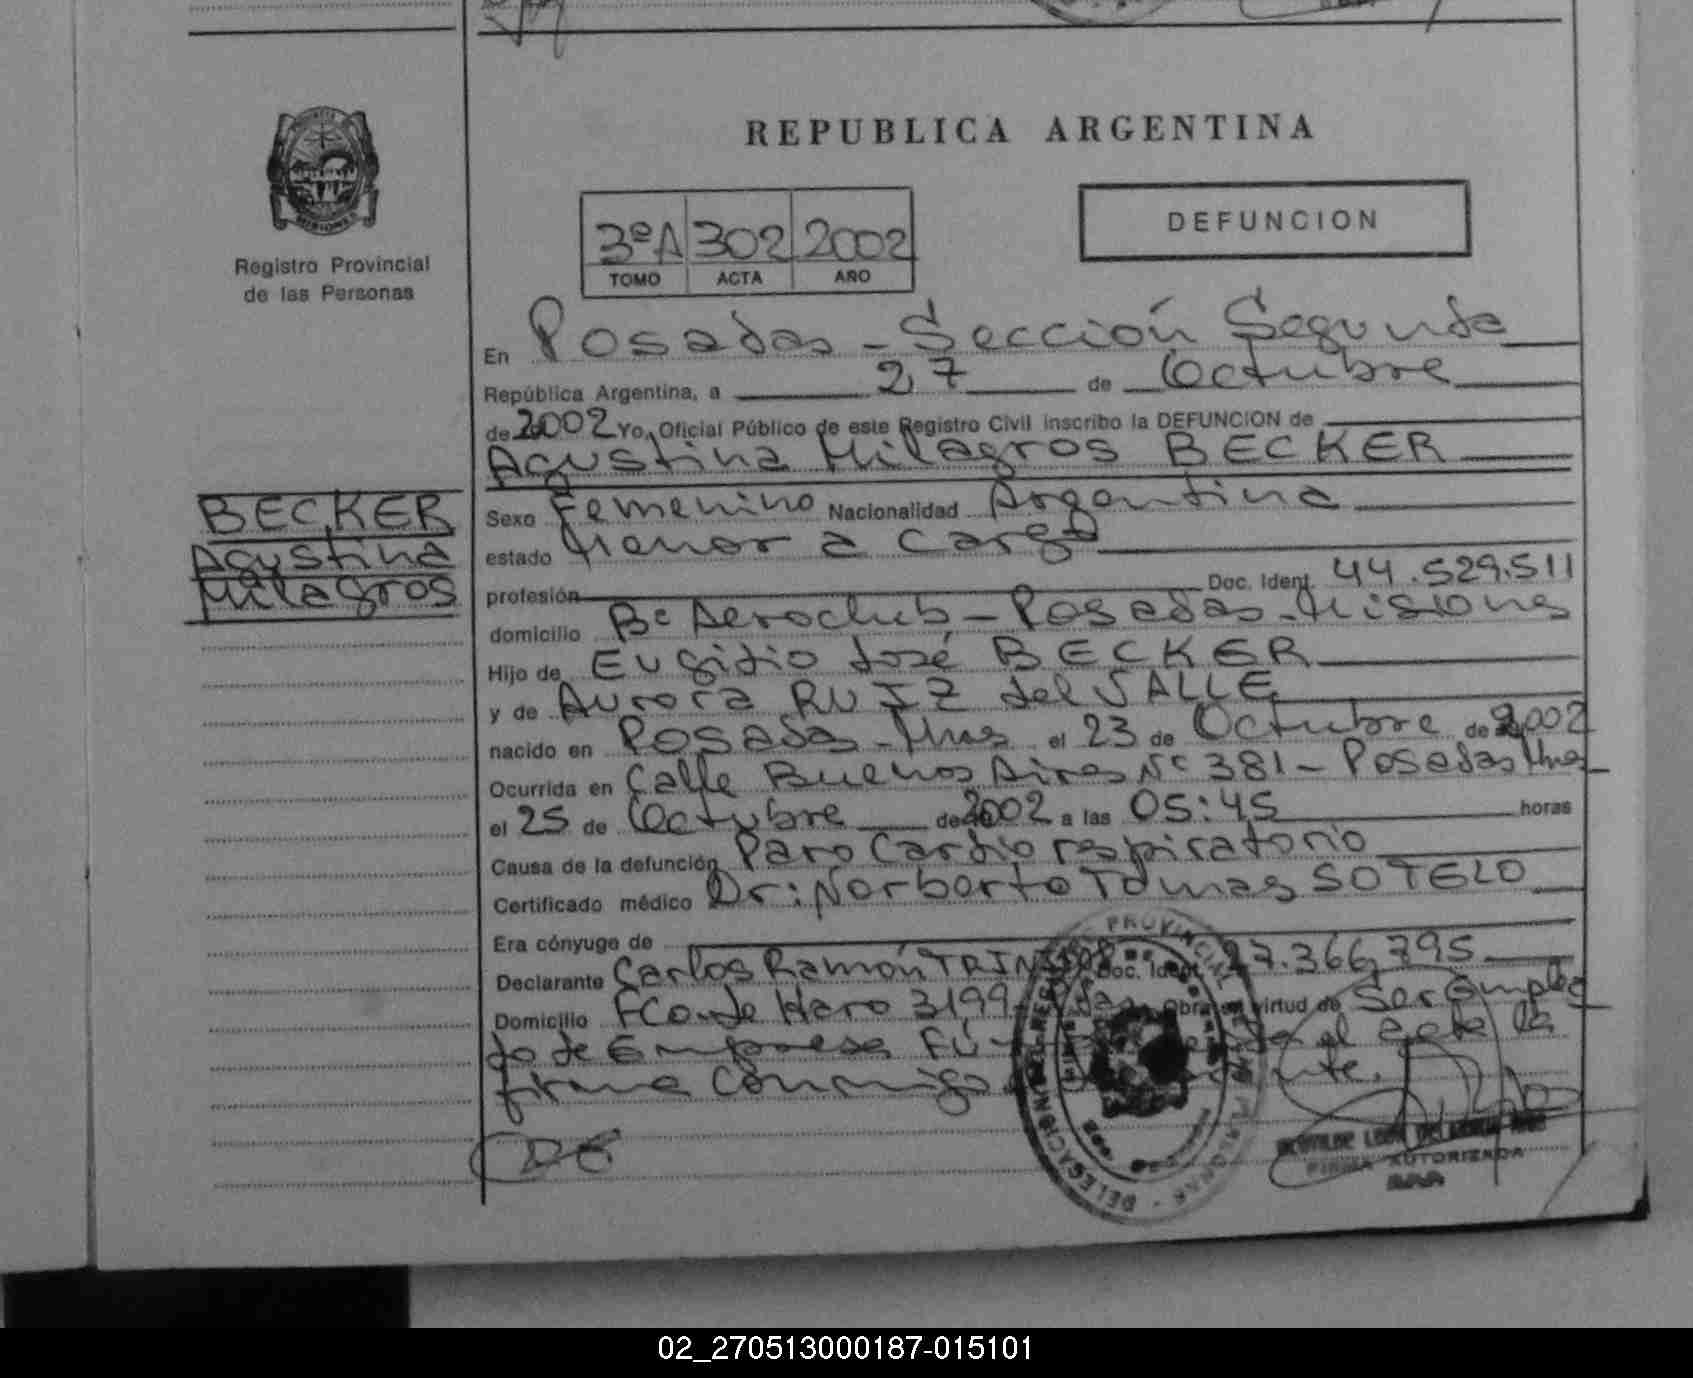 REPUBLICA ARGENTINA
DEFUNCION
3ºA 302 2002
TOMO ACTA AÑO
Registro Provincial
de las Personas
En Posadas - Sección Segunda
República Argentina, a 27 de Octubre
de 2002 Yo, Oficial Público de este Registro Civil inscribo la DEFUNCION de
Agustina Milagros BECKER
BECKER
Agustina
Milagros
Sexo Femenino Nacionalidad Argentina
estado Menor a cargo
profesión Doc. Ident. 44.529.511
domicilio Bº Aeroclub - Posadas - Misiones
Hijo de Eugidio José BECKER
y de Aurora RUIZ del VALLE
nacido en Posadas - Mnes el 23 de Octubre de 2002
Ocurrida en Calle Buenos Aires Nº 381 - Posadas Mnes
el 25 de Octubre de 2002 a las 05:45 horas
Causa de la defunción Paro Cardio respiratorio
Certificado médico Dr: Norberto Tomas SOTELO
Era cónyuge de
Declarante Carlos Ramón Doc. Ident. 27.366.795
Domicilio Fco. de Haro 3199 Obra en virtud de Ser Emplea
do de Empresa el acta la
firma conmigo
PROVINCIA
DELEGACION
FIRMA AUTORIZADA
02_270513000187-015101